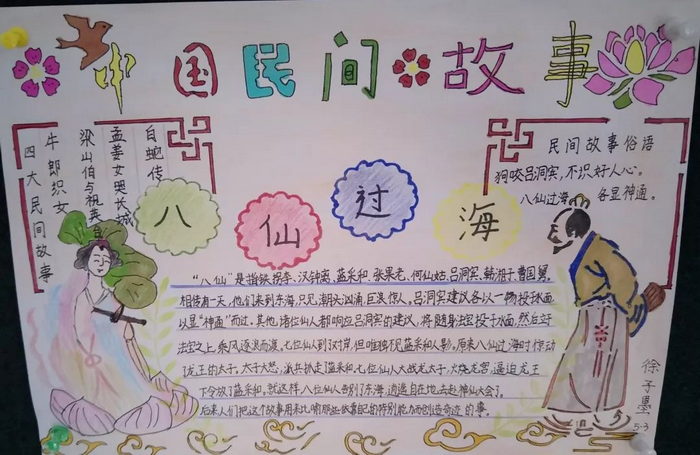 中国民间故事
四大民间故事
牛郎织女
梁山伯与祝英台
孟姜女哭长城
白蛇传
民间故事俗语
狗咬吕洞宾,不识好人心。
八仙过海 各显神通。
八仙过海
“八仙”是指铁拐李、汉钟离、蓝采和、张果老、何仙姑、吕洞宾、韩湘子、曹国舅。
相传有一天,他们来到东海,只见潮头汹涌,巨浪惊人。吕洞宾建议各以一物投于水面,
以显“神通”而过。其他诸位仙人都响应吕洞宾的建议,将随身法宝投于水面,然后立于
法宝之上,乘风逐浪而渡。七位仙人到了对岸,但唯独不见蓝采和人影。原来八仙过海时惊动
龙王的太子,太子大怒,派兵抓走了蓝采和,七位仙人大战龙太子,火烧龙宫,逼迫龙王
下令放了蓝采和。就这样,八位仙人告别了东海,逍遥自在地去赴神仙大会了。
后来人们把这个故事用来比喻那些依靠自己的特别能力而创造奇迹的事。
徐子墨
5.3